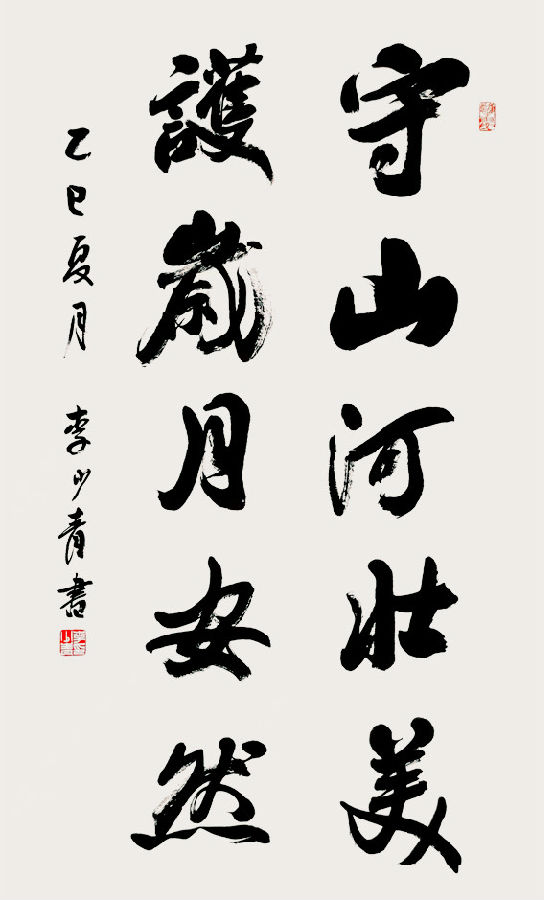 守山河壮美
護歳月安然
乙巳夏月 李少青書